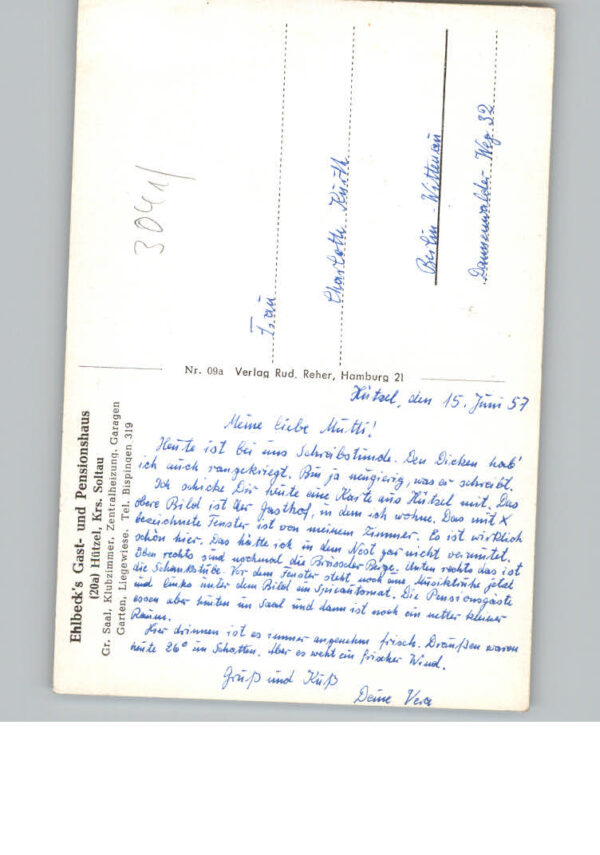 3041/
Frau
Charlotte Kurth
Berlin-Wittenau
Dannenwalder Weg 32
Nr. 09a Verlag Rud. Reher, Hamburg 21
Ehlbeck's Gast- und Pensionshaus
(20a) Hützel, Krs. Soltau
Gr. Saal, Klubzimmer, Zentralheizung, Garagen
Garten, Liegewiese. Tel. Bispingen 319
Hützel, den 15. Juni 57
Meine liebe Mutti!
Heute ist bei uns Schreibstunde. Den Dicken hab'
ich auch rangekriegt. Bin ja neugierig, was er schreibt.
Ich schicke Dir heute eine Karte aus Hützel mit. Das
obere Bild ist der Gasthof, in dem ich wohne. Das mit X
bezeichnete Fenster ist von meinem Zimmer. Es ist wirklich
schön hier. Das hätte ich in dem Nest gar nicht vermutet.
Oben rechts sind nochmal die Berge. Unten rechts das ist
die Schankstube. Vor dem Fenster steht noch eine Musiktruhe jetzt
und links unter dem Bild ein Spielautomat. Die Pensionsgäste
essen aber hinten im Saal und dann ist noch ein netter kleiner
Raum.
Hier drinnen ist es immer angenehm frisch. Draußen waren
heute 26° im Schatten. Aber es weht ein frischer Wind.
Gruß und Kuß
Deine Vera